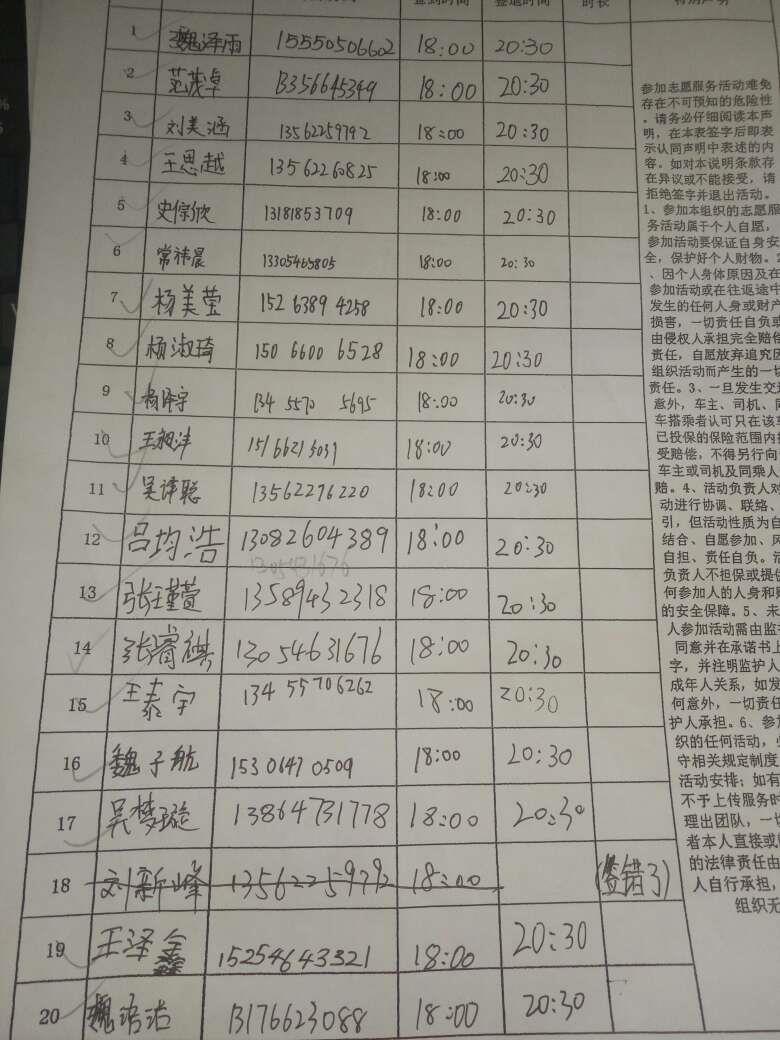 签到时间 签退时间 时长 特别声明
1 魏泽雨 15550506602 18:00 20:30
2 范茂卓 13356645349 18:00 20:30
3 刘美涵 13562259792 18:00 20:30
4 王思越 13562260825 18:00 20:30
5 史倧欣 13181853709 18:00 20:30
6 常祎晨 13305465805 18:00 20:30
7 杨美莹 152 6389 4258 18:00 20:30
8 杨淑琦 150 6600 6528 18:00 20:30
9 杨泽宇 134 5570 5695 18:00 20:30
10 王昶沣 15166213039 18:00 20:30
11 吴谆聪 13562276220 18:00 20:30
12 吕均浩 13082604389 18:00 20:30
13054631676
13 张瑾萱 13589432318 18:00 20:30
14 张睿祺 13054631676 18:00 20:30
15 王泰宇 134 55706262 18:00 20:30
16 魏子航 15306470509 18:00 20:30
17 吴梦璇 13864731778 18:00 20:30
18 刘新峰 13562259792 18:00 (签错了)
19 王泽鑫 15254643321 18:00 20:30
20 魏洺洁 13176623088 18:00 20:30
参加志愿服务活动难免
存在不可预知的危险性
。请务必仔细阅读本声
明，在本表签字后即表
示认同声明中表述的内
容。如对本说明条款存
在异议或不能接受，请
拒绝签字并退出活动。
1、参加本组织的志愿服
务活动属于个人自愿，
参加活动要保证自身安
全，保护好个人财物。2
、因个人身体原因及在
参加活动或在往返途中
发生的任何人身或财产
损害，一切责任自负或
由侵权人承担完全赔偿
责任，自愿放弃追究因
组织活动而产生的一切
责任。3、一旦发生交通
意外，车主、司机、同
车搭乘者认可只在该车
已投保的保险范围内接
受赔偿，不得另行向
车主或司机及同乘人
赔。4、活动负责人对
动进行协调、联络、
引，但活动性质为自
结合、自愿参加、风
自担、责任自负。活
负责人不担保或提供
何参加人的人身和财
的安全保障。5、未
人参加活动需由监
同意并在承诺书上
字，并注明监护人
成年人关系，如发
何意外，一切责任
护人承担。6、参加
织的任何活动，必
守相关规定制度
活动安排；如有
不予上传服务时
理出团队，一切
者本人直接或
的法律责任由
人自行承担，
组织无